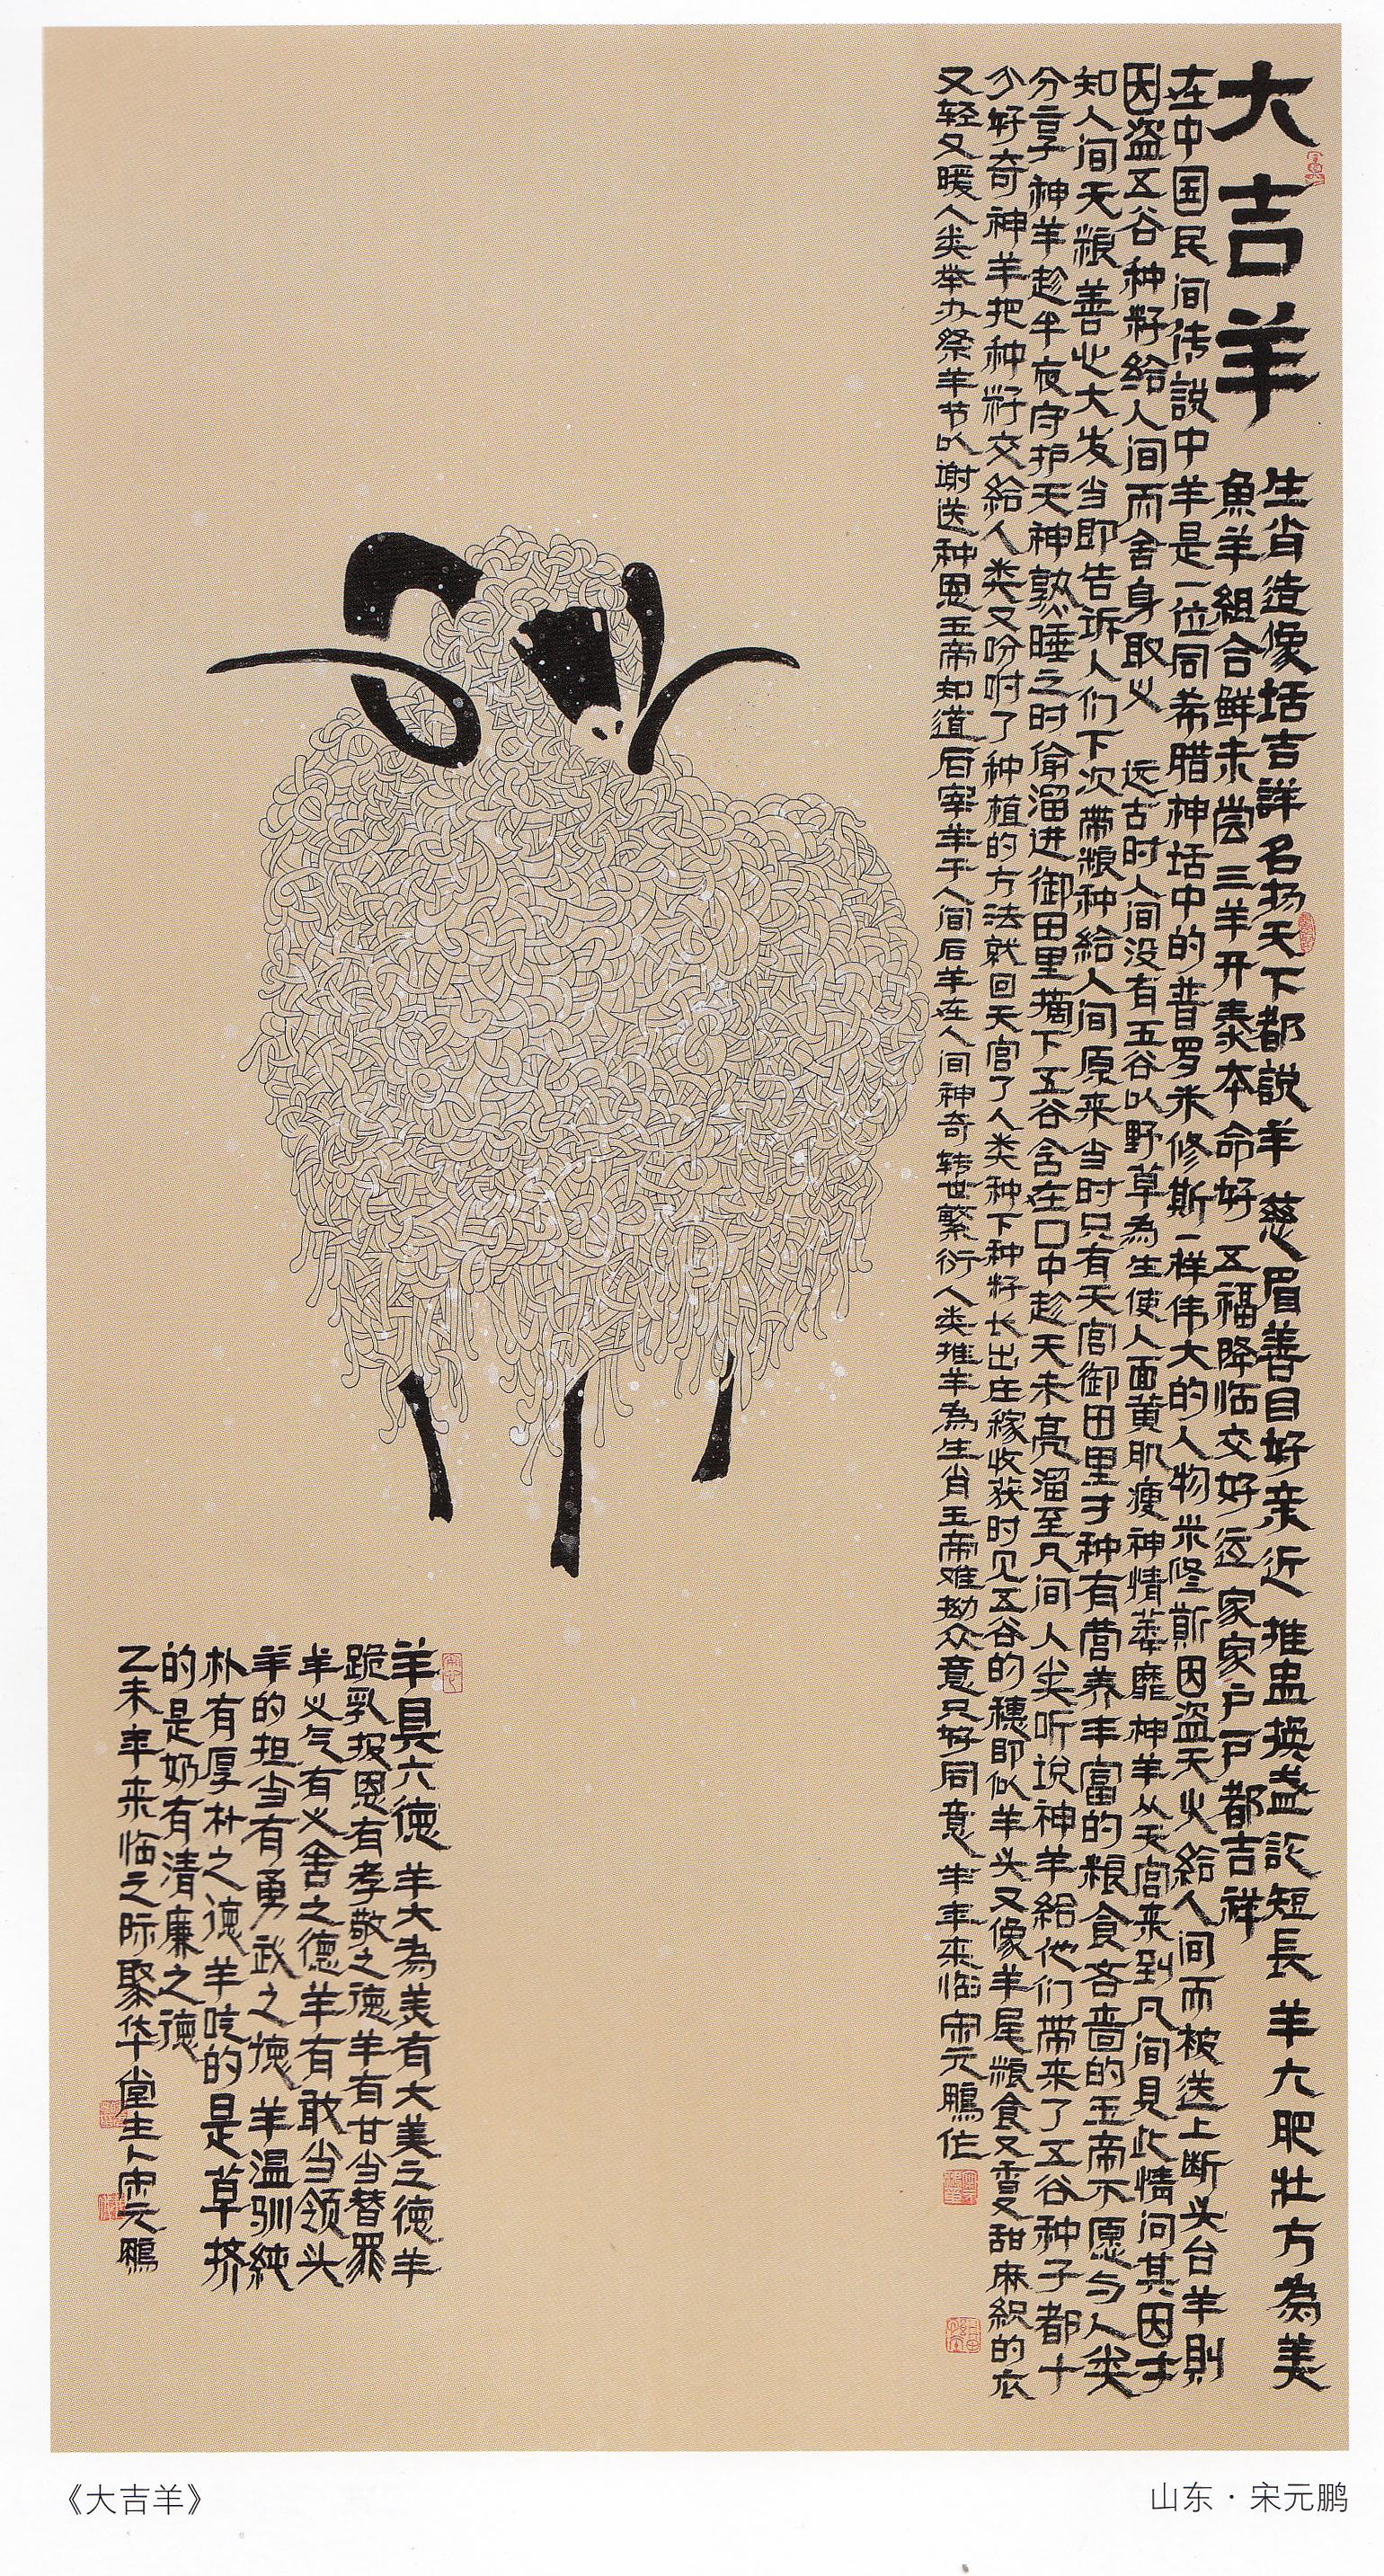 大吉羊
生肖造像括吉詳名扬天下都說羊 慈眉善目好亲近 推盅换盏記短長 羊大肥壮方為美
魚羊組合鲜未尝 三羊开泰本命好 五福降临交好运 家家户户都吉祥
在中国民间传說中羊是一位同希腊神话中的普罗米修斯一样伟大的人物米修斯因盗天火給人间而被送上断头台羊則
因盗五谷种籽給人间而舍身取义 远古时人间没有五谷以野草為生使人面黄肌瘦神情萎靡神羊从天宫来到凡间見此情问其因才
知人间无粮善心大发当即告诉人们下次带粮种给人间原来当时只有天宫御田里才种有营养丰富的粮食吝啬的玉帝不愿与人类
分享神羊趁半夜守护天神熟睡之时偷溜进御田里摘下五谷含在口中趁天未亮溜至凡间人类听说神羊給他们带来了五谷种子都十
分好奇神羊把种籽交給人类又吩咐了种植的方法就回天宫了人类种下种籽长出庄稼收获时见五谷的穗即似羊头又像羊尾粮食又香又甜麻织的衣
又轻又暖人类举办祭羊节以謝送种恩玉帝知道后宰羊于人间后羊在人间神奇转世繁衍人类推羊為生肖玉帝难拗众意只好同意 羊年来临宋元鵬作
羊具六德 羊大為美有大美之德羊
跪乳报恩有孝敬之德羊有甘当替罪
羊义气有义舍之德羊有敢当领头
羊的担当有勇武之德 羊温驯純
朴有厚朴之德羊吃的是草挤
的是奶有清廉之德
乙未年来临之际聚华堂主人宋元鵬
《大吉羊》
山东·宋元鹏